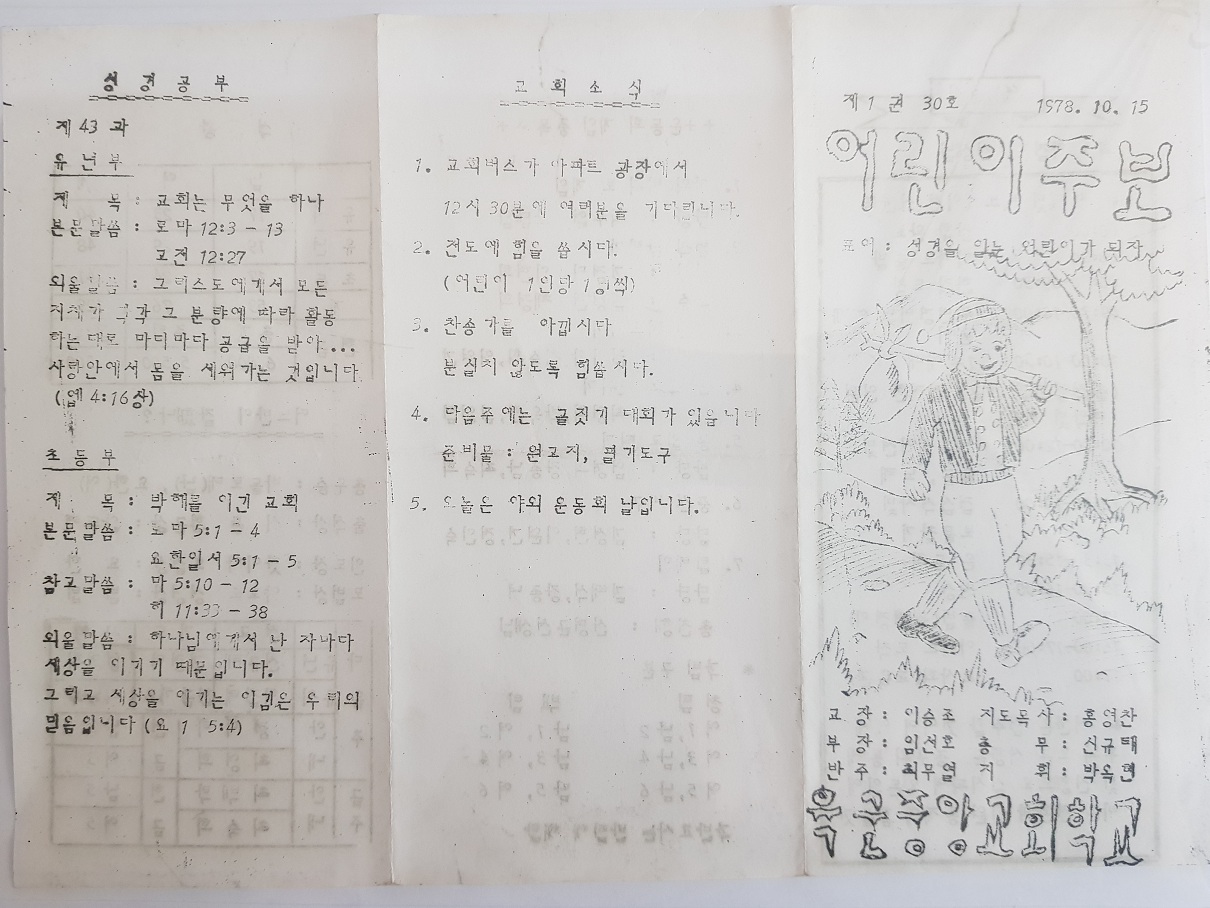 성 경 공 부
제 43 과
유 년 부
제 목 : 교회는 무엇을 하나
본문말씀 : 로마 12:3 - 13
고전 12:27
외울말씀 : 그리스도에게서 모든
지체가 각각 그 분량에 따라 활동
하는대로 마디마다 공급을 받아...
사랑안에서 몸을 세워가는 것입니다
(엡 4:16상)
초 등 부
제 목 : 박해를 이긴 교회
본문말씀 : 로마 5:1 - 4
요한일서 5:1 - 5
참고말씀 : 마 5:10 - 12
히 11:33 - 38
외울말씀 : 하나님에게서 난 자마다
세상을 이기기 때문입니다.
그리고 세상을 이기는 이김은 우리의
믿음입니다 (요 1 5:4)
교 회 소 식
1. 교회버스가 아파트 광장에서
12시 30분에 여러분을 기다립니다.
2. 전도에 힘을 씁시다.
(어린이 1인당 1명씩)
3. 찬송가를 아낍시다
분실치 않도록 힘씁시다.
4. 다음주에는 글짓기 대회가 있읍니다
준비물 : 원고지, 필기도구
5. 오늘은 야외 운동회 날입니다.
제 1 권 30호 1978. 10. 15
어린이주보
표어 : 성경을 읽는 어린이가 되자
교 장 : 이승조 지도목사 : 홍영찬
부 장 : 임선호 총 무 : 신규태
반 주 : 최무열 지 휘 : 박옥현
중앙교회학교